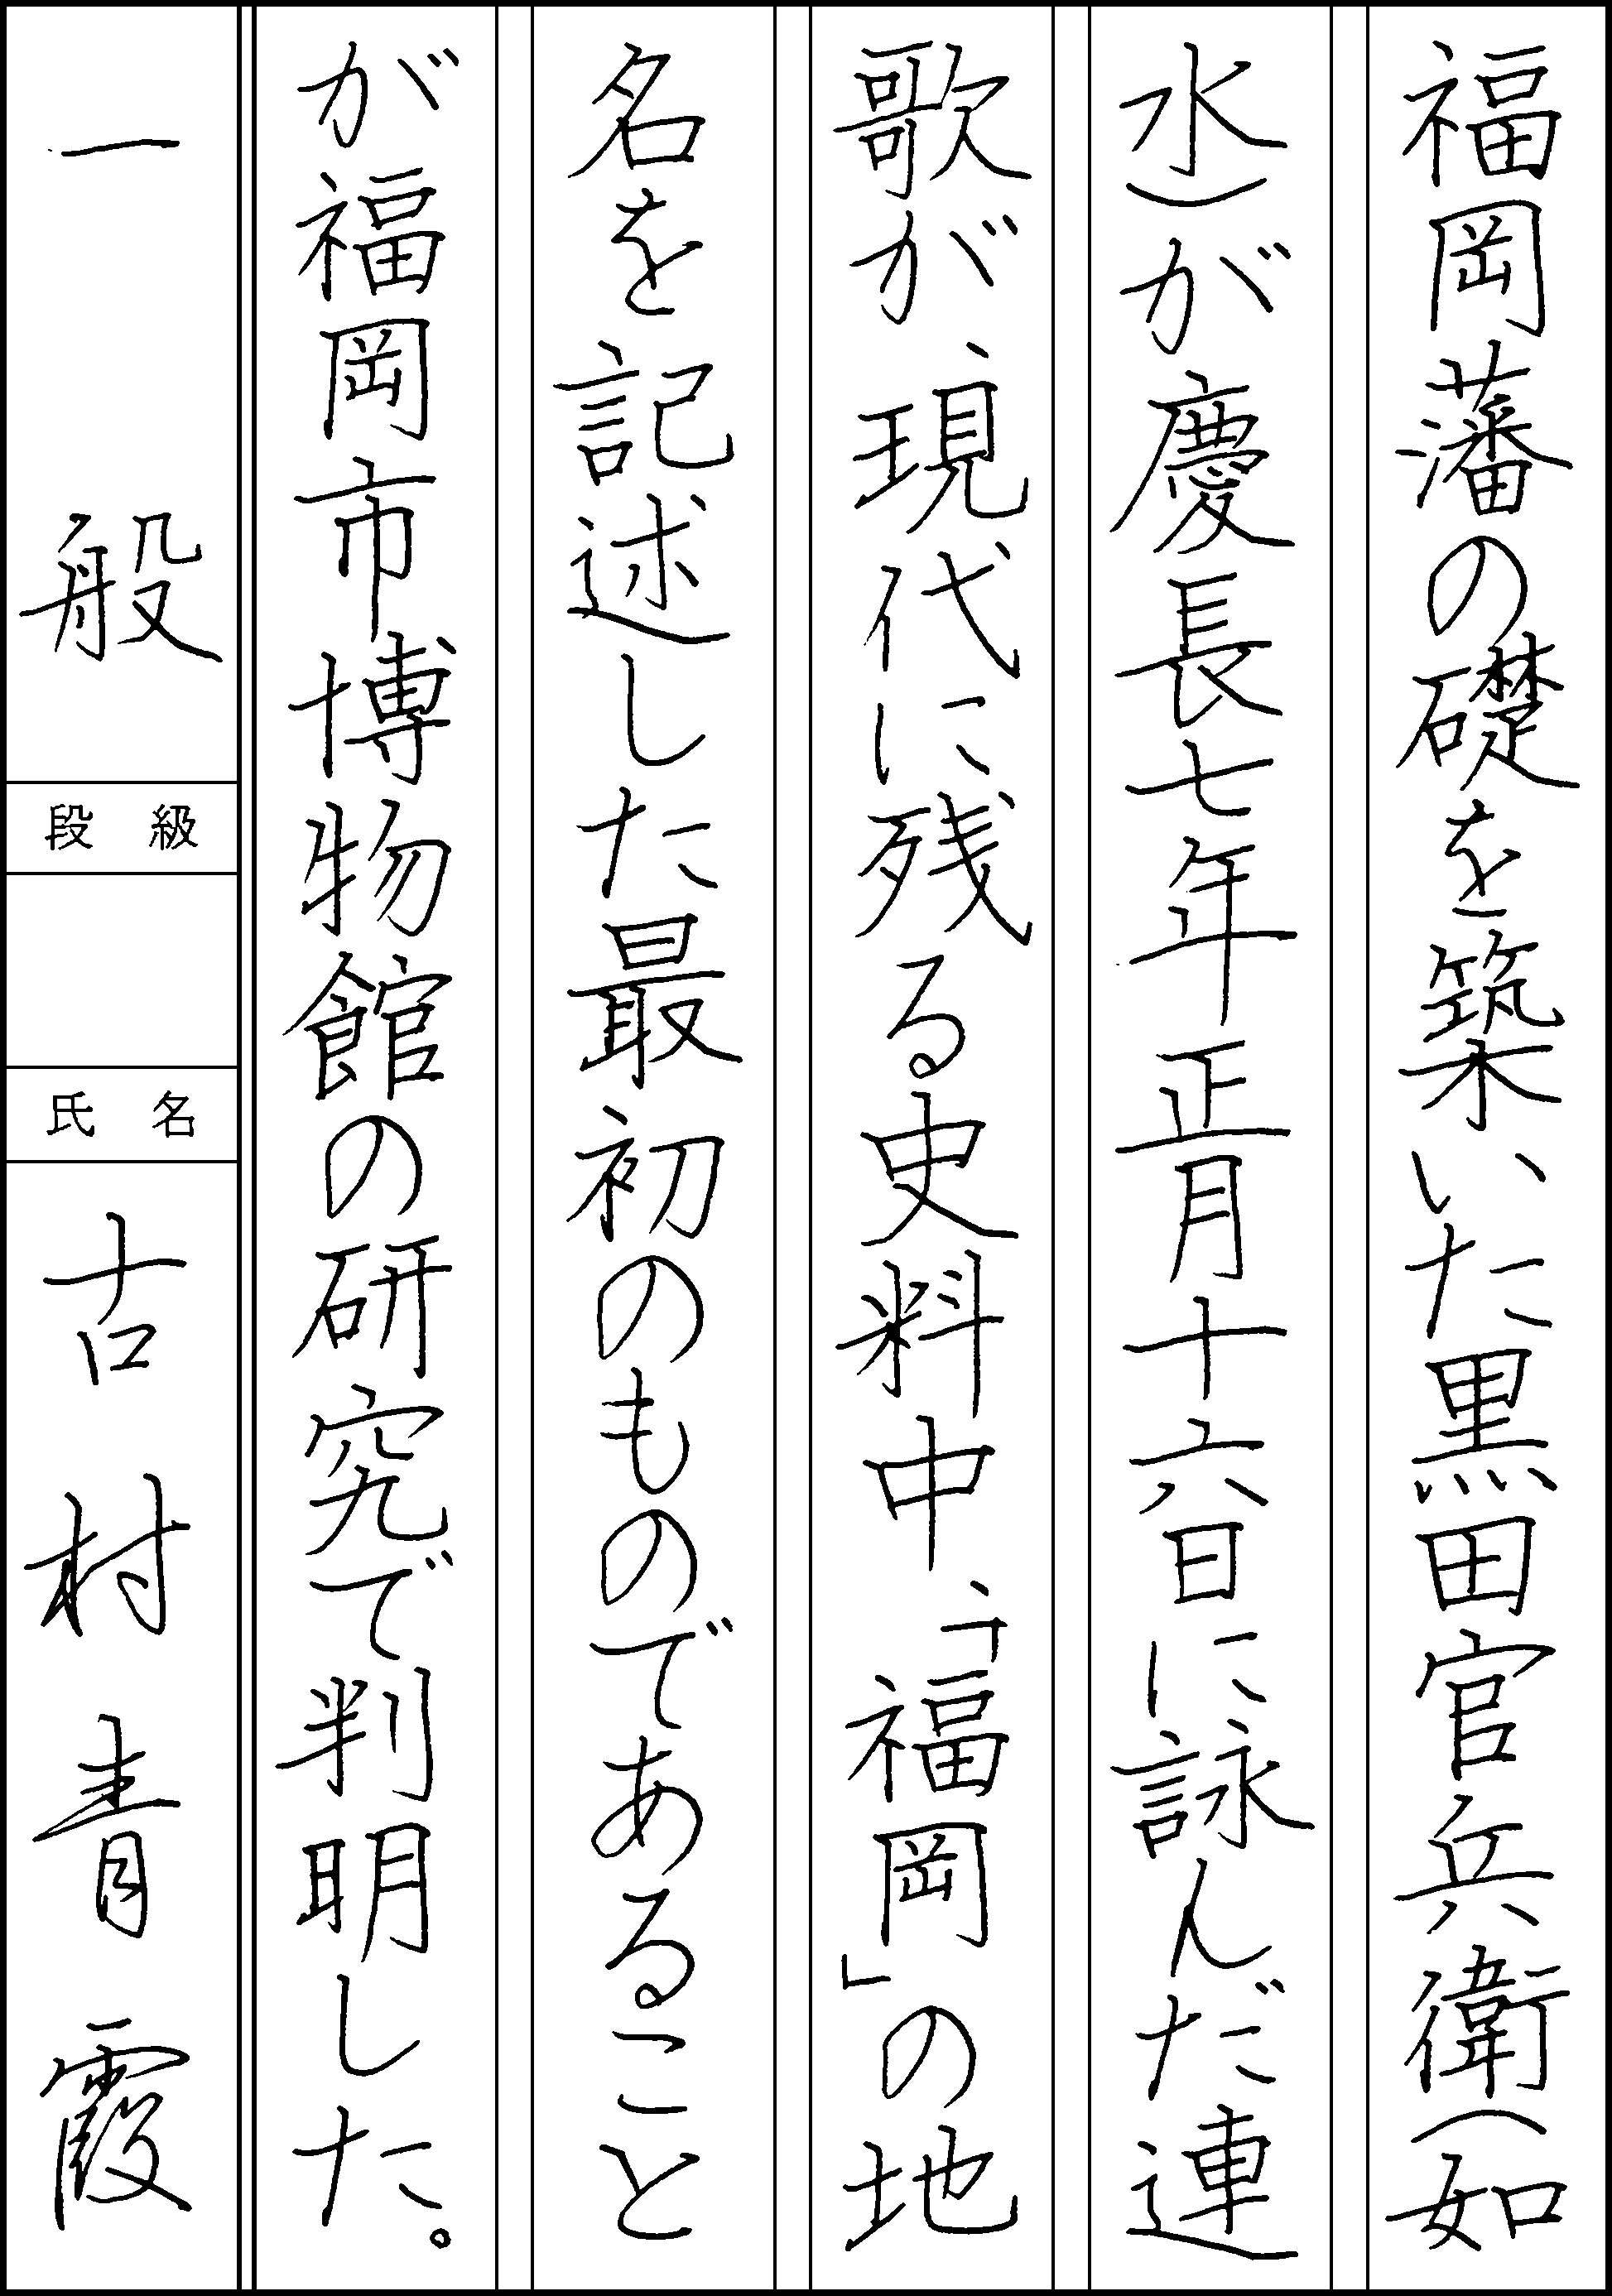 福岡藩の礎を築いた黒田官兵衛（如
水）が慶長七年正月十六日に詠んだ連
歌が、現代に残る史料中、「福岡」の地
名を記述した最初のものであること
が福岡市博物館の研究で判明した。
一般
段級
氏名
古村青霞